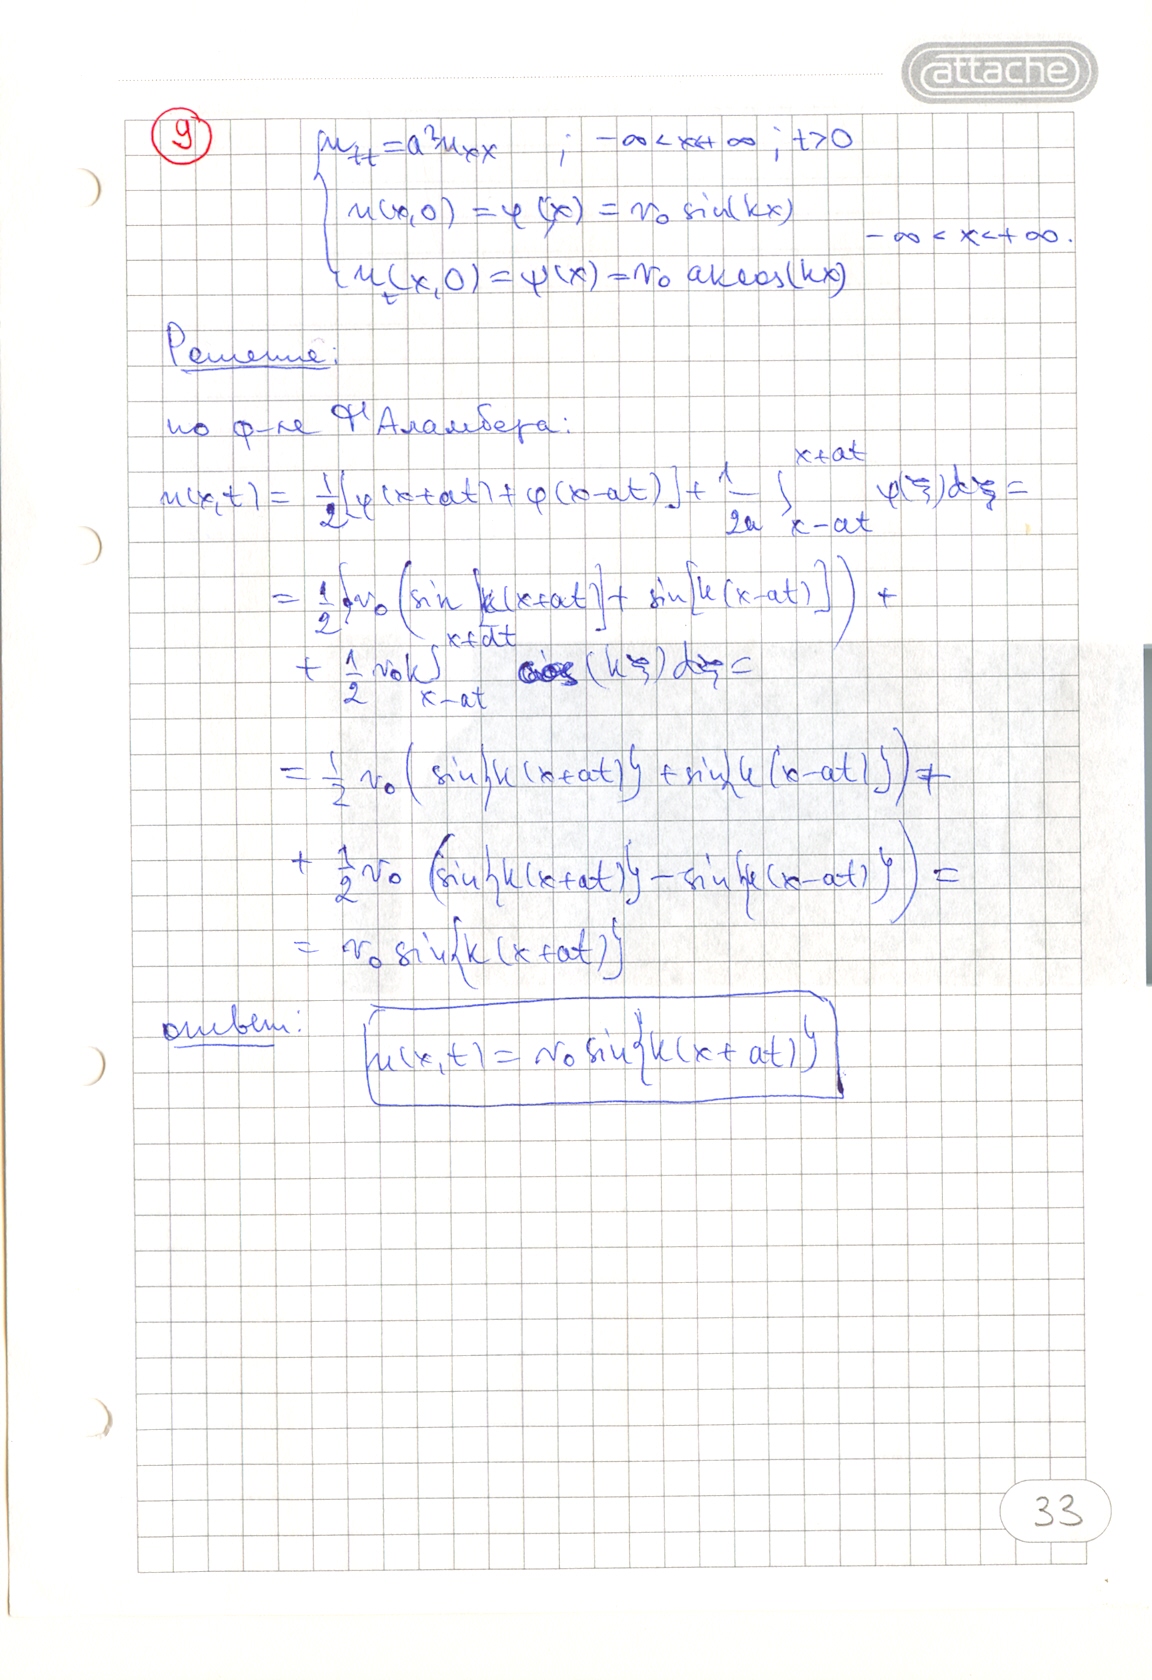 attache
9
u_tt = a²u_xx ; -∞ < x < +∞ ; t>0
u(x,0) = φ(x) = v₀ sin(kx)
-∞ < x < +∞.
u_t(x,0) = ψ(x) = v₀ ak cos(kx)
Решение:
по ф-ле Д'Аламбера:
u(x,t) = 1/2[φ(x+at)+φ(x-at)] + 1/2a ∫_{x-at}^{x+at} ψ(ξ)dξ =
= 1/2 v₀ (sin[k(x+at)] + sin[k(x-at)]) +
+ 1/2 v₀k ∫_{x-at}^{x+at} cos(kξ)dξ =
= 1/2 v₀ (sin{k(x+at)} + sin{k(x-at)}) +
+ 1/2 v₀ (sin{k(x+at)} - sin{k(x-at)}) =
= v₀ sin{k(x+at)}
ответ: u(x,t) = v₀ sin{k(x+at)}
33